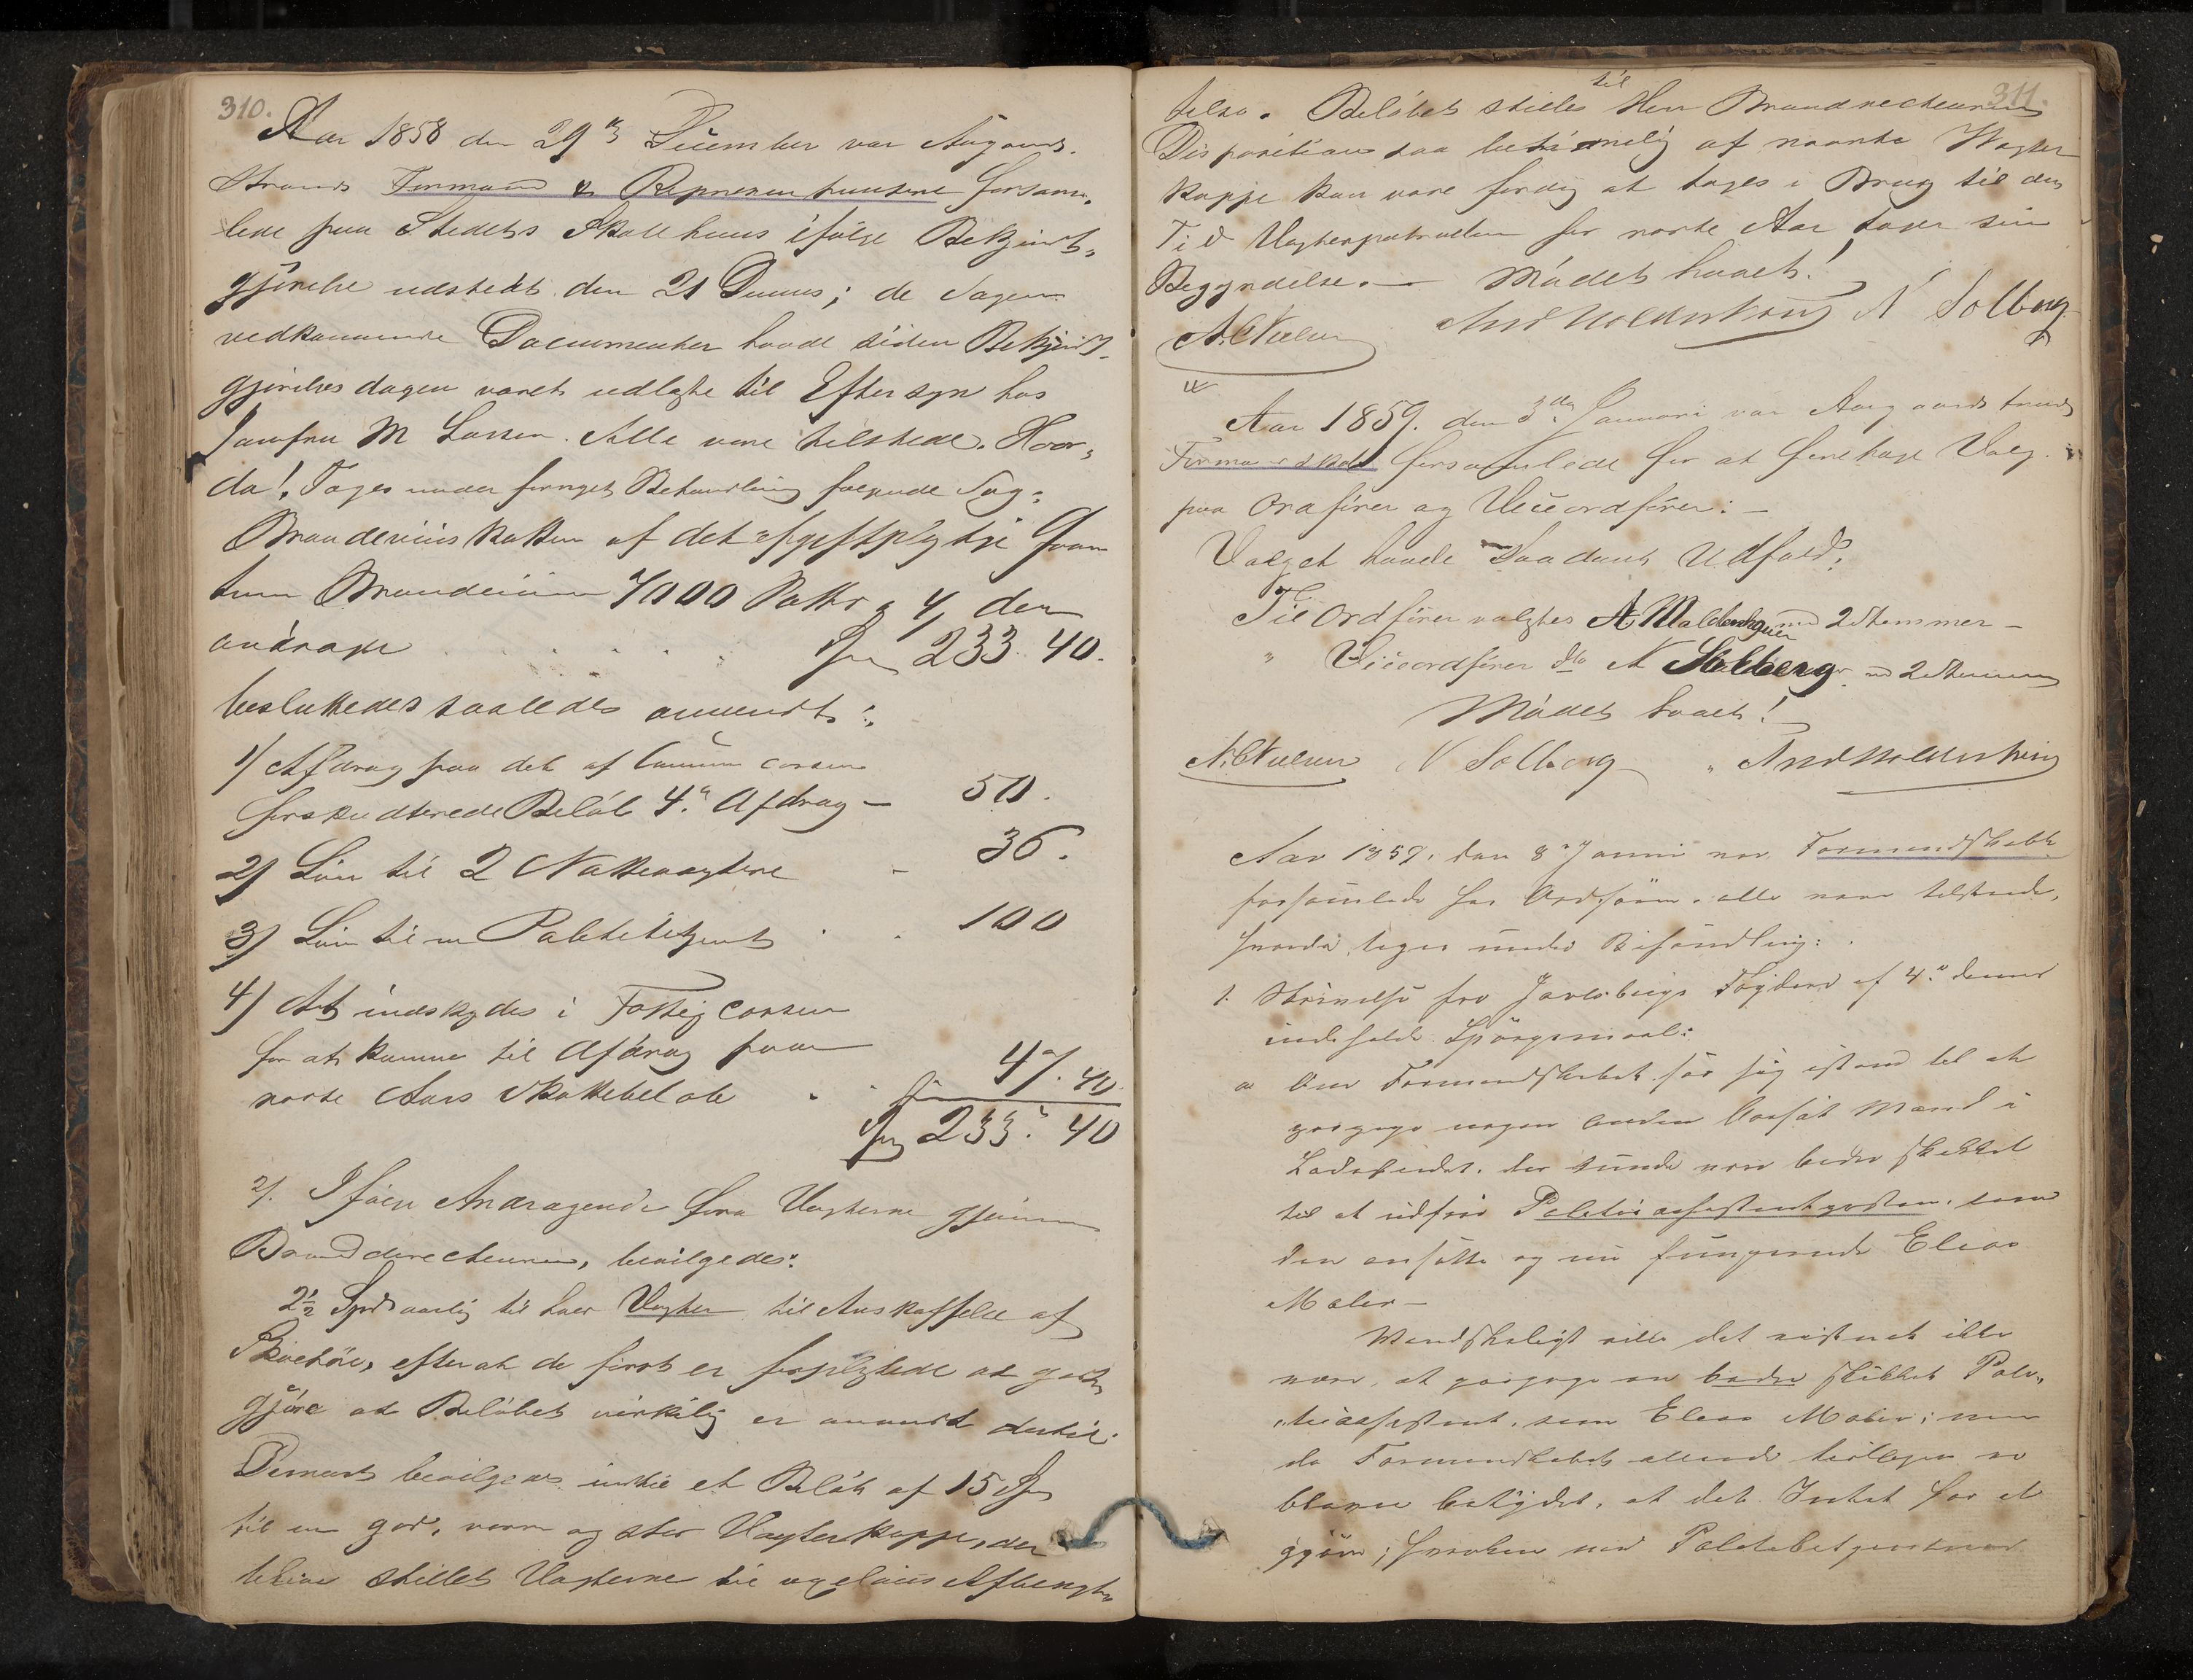 310.
Aar 1858 den 29de December var Aasgaard-
strands Formænd & Repræsentantere forsam-
lede paa Stedets Skolehuus ifølge Bekjendt-
gjørelse udstedt den 21 Dennes; de Sagen
vedkommende Documenter havde siden Bekjendt-
gjørelsesdagen været udlagte til Eftersyn hos
Jomfru M Larsen. Alle vare tilstede. Hvor-
da! Toges under fornyet Behandling følgende Sag:
Brændeviinskatten af det afgiftspligtige Qvan
tum Brændeviin 7000 Potter a 4 ß der
andrager . . . . . Spd 233. 40.
besluttedes saaledes anvendt:
1) Afdrag paa det af Commune Cassen
forskudterede Beløb 4de Afdrag — 50.
2) Løn til 2 Nattevægtere - 36.
3) Løn til en Politibetjent . . 100
4) At indskydes i Fattigcassen
for at komme til Afdrag paa
næste Aars Skattebeløb . . 47. 40.
Spd 233. 40
2). Ifølge Andragende fra Vægterne gjennem
Branddirecteuren, bevilgedes:
2½ Spd aarlig til hver Vægter til Anskaffelse af
Skoetøi, efterat de først er forpligtede at godt
gjøre at Beløbet virkelig er anvendt dertil.
Dernæst bevilgedes indtil et Beløb af 15 Spd
til en god, varm og stor Vægterkappe, der
bliver stillet Vægterne til Afbenyt-
311.
telse. Beløbet stilles til Herr Branddirecteurens
Disposition saa betimelig at nævnte Vægter
kappe kan være færdig at tages i Brug til den
Tid Vægterpatrullen for næste Aar tager sin
Begyndelse. — Mødet hævet!
A. Nielsen And Holdenskoug N Solberg
Aar 1859. den 3die Januari var Aasgaardstrands
Formandskab forsamlede for at foretage Valg
paa Ordfører og Viceordfører: —
Valget havde saadant Udfald:
Til Ordfører valgtes A Holdenskouen med 2 Stemmer —
" Viceordfører do N Solberg md 2 Stemmer
Mødet hævet!
A. Nielsen N Solberg " And Holdenskoug
Aar 1859. den 8de Januari var Formandskabet
forsamlede hos Ordføren. alle vare tilstede,
hvorda toges under Behandling:
1. Skrivelse fra Jarlsbergs Fogderi af 4de dennes
indeholder Spørgsmaal:
a Om Formandskabet saa sig istand til at
paapege nogen anden bosat Mand i
Ladestedet, der kunde være bedre skikket
til at udføre Politieassistentposten, end
den ansatte og nu fungerende Elias
Maler —
Vanskeligt ville det vistnok ikke
være, at paapege en bedre skikket Poli-
tieassistent, som Elias Maler; men
da Formandskabet allerede tidligere er
bleven betydet, at det Intet har at
gjøre; hverken med Politiebetjentens